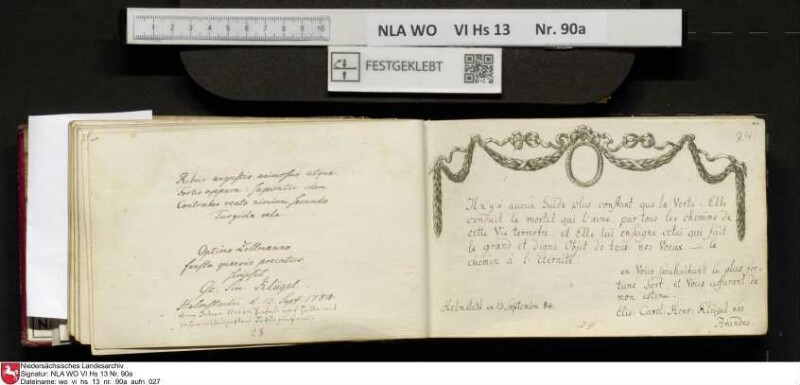 NLA WO VI Hs 13 Nr. 90a
FESTGEKLEBT
Rebus angustis animosus atque
Fortis appare: sapienter idem
Contrahes vento nimium secundo
Turgida vela
Optimo Zellmanno
fausta quaevis precatus
Ge. Sim. Klügel.
Helmstadii d. 13. Sept. 1784.
28
29
Il n'y a aucun Guide plus constant que la Vertu: Elle
conduit le mortel qui l'aime, par tous les chemins de
cette Vie terrestre et Elle lui enseigne celui qui fait
le grand et digne Objet de tous nos Voeux — le
chemin à l'éternité.
en Vous souhaitant la plus for-
tune Sort, et Vous assurant de
mon estime.
Helmstedt ce 13 Septembre 84.
Elis: Carol: Henr: Klügel née
Brandes.
Niedersächsisches Landesarchiv
Signatur: NLA WO VI Hs 13 Nr. 90a
Dateiname: wo_vi_hs_13_nr._90a_aufn_027